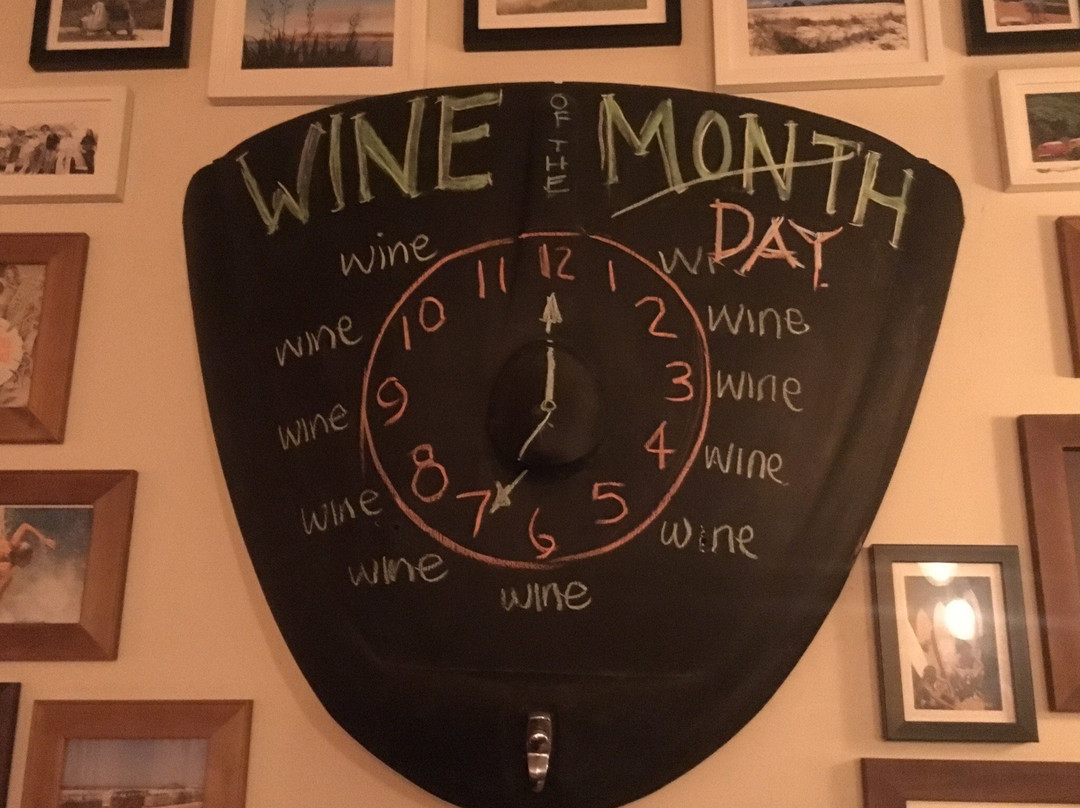 WINE OF THE MONTH
DAY
wine 11 12 1
wine 10 2 wine
wine 9 3 wine
wine 8 4 wine
wine 7 6 5 wine
wine